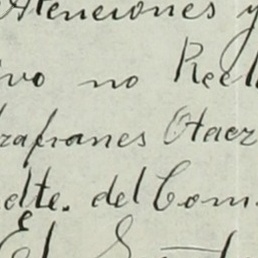 Atenciones y
ivo no Reel
zafranes Otaez
dte. del Com.
El S